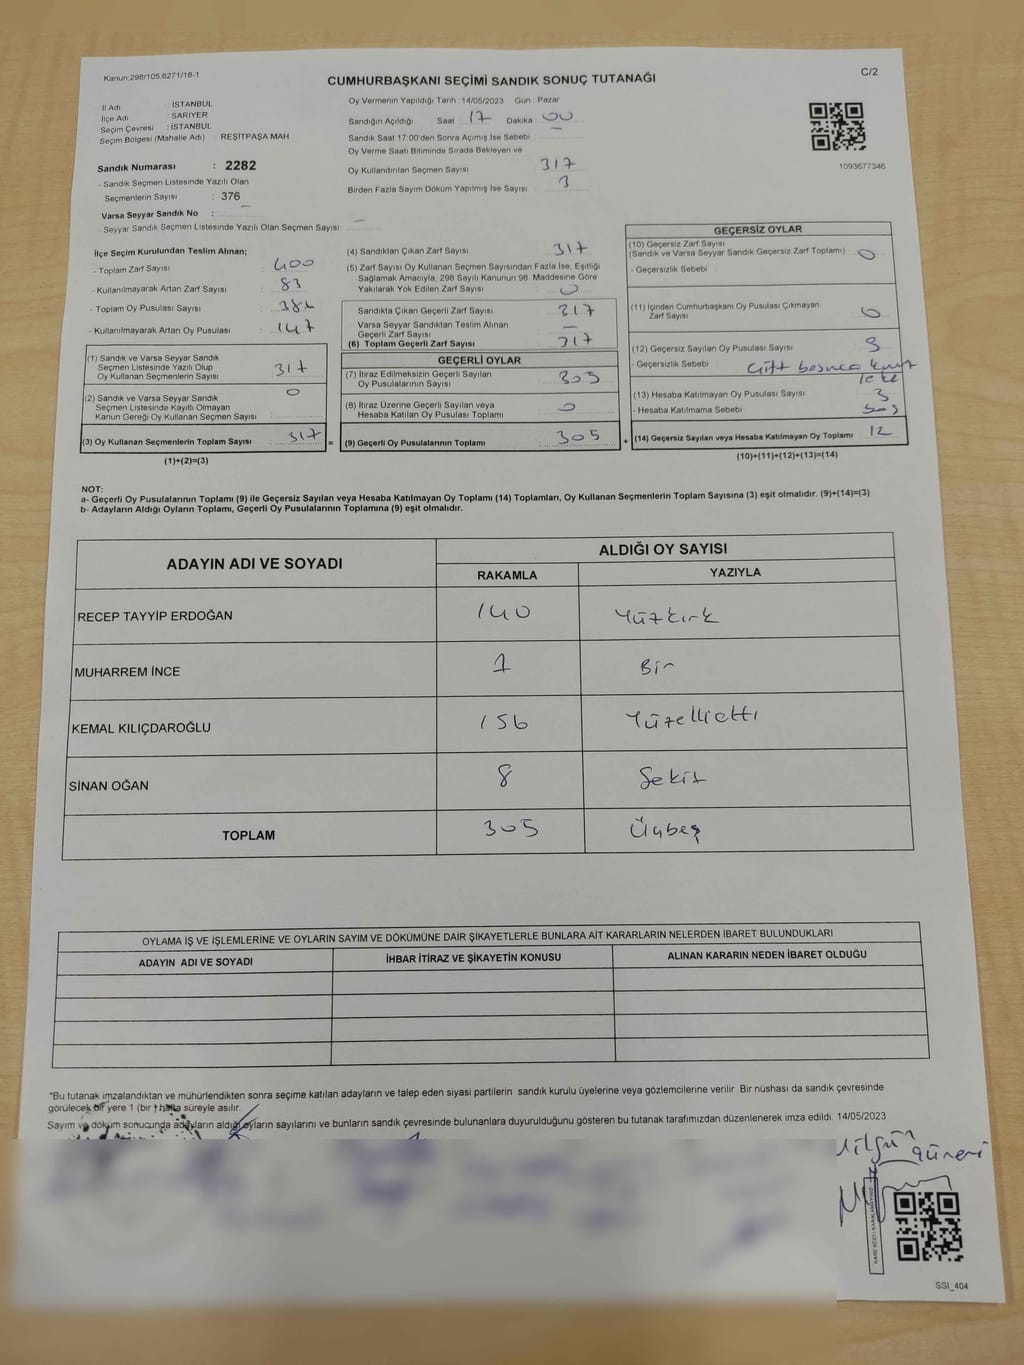 Kanun:298/105,6271/18-1
CUMHURBAŞKANI SEÇİMİ SANDIK SONUÇ TUTANAĞI
C/2
İl Adı : İSTANBUL
İlçe Adı : SARIYER
Seçim Çevresi : İSTANBUL
Seçim Bölgesi (Mahalle Adı) : REŞİTPAŞA MAH
Sandık Numarası : 2282
- Sandık Seçmen Listesinde Yazılı Olan
Seçmenlerin Sayısı : 376
Varsa Seyyar Sandık No :
- Seyyar Sandık Seçmen Listesinde Yazılı Olan Seçmen Sayısı: —
Oy Vermenin Yapıldığı Tarih : 14/05/2023 Gün : Pazar
Sandığın Açıldığı Saat : 17 Dakika : 00
Sandık Saat 17:00'den Sonra Açımış İse Sebebi :
Oy Verme Saati Bitiminde Sırada Bekleyen ve
Oy Kullandırılan Seçmen Sayısı : 317
Birden Fazla Sayım Döküm Yapılmış İse Sayısı : 3
1093677346
İlçe Seçim Kurulundan Teslim Alınan;
- Toplam Zarf Sayısı : 400
- Kullanılmayarak Artan Zarf Sayısı : 83
- Toplam Oy Pusulası Sayısı :
- Kullanılmayarak Artan Oy Pusulası : 147
(1) Sandık ve Varsa Seyyar Sandık
Seçmen Listesinde Yazılı Olup
Oy Kullanan Seçmenlerin Sayısı : 317
(2) Sandık ve Varsa Seyyar Sandık
Seçmen Listesinde Kayıtlı Olmayan
Kanun Gereği Oy Kullanan Seçmen Sayısı : 0
(3) Oy Kullanan Seçmenlerin Toplam Sayısı : 317
(1)+(2)=(3)
(4) Sandıktan Çıkan Zarf Sayısı : 317
(5) Zarf Sayısı Oy Kullanan Seçmen Sayısından Fazla İse, Eşitliği
Sağlamak Amacıyla, 298 Sayılı Kanunun 98. Maddesine Göre
Yakılarak Yok Edilen Zarf Sayısı : 0
Sandıkta Çıkan Geçerli Zarf Sayısı : 317
Varsa Seyyar Sandıktan Teslim Alınan
Geçerli Zarf Sayısı : —
(6) Toplam Geçerli Zarf Sayısı : 317
GEÇERLİ OYLAR
(7) İtiraz Edilmeksizin Geçerli Sayılan
Oy Pusulalarının Sayısı : 305
(8) İtiraz Üzerine Geçerli Sayılan veya
Hesaba Katılan Oy Pusulası Toplamı : 0
= (9) Geçerli Oy Pusulalarının Toplamı : 305
GEÇERSİZ OYLAR
(10) Geçersiz Zarf Sayısı
(Sandık ve Varsa Seyyar Sandık Geçersiz Zarf Toplamı) : 0
- Geçersizlik Sebebi :
(11) İçinden Cumhurbaşkanı Oy Pusulası Çıkmayan
Zarf Sayısı : 0
(12) Geçersiz Sayılan Oy Pusulası Sayısı : 9
- Geçersizlik Sebebi : çift
(13) Hesaba Katılmayan Oy Pusulası Sayısı : 3
- Hesaba Katılmama Sebebi : boş
+ (14) Geçersiz Sayılan veya Hesaba Katılmayan Oy Toplamı : 12
(10)+(11)+(12)+(13)=(14)
NOT:
a- Geçerli Oy Pusulalarının Toplamı (9) ile Geçersiz Sayılan veya Hesaba Katılmayan Oy Toplamı (14) Toplamları, Oy Kullanan Seçmenlerin Toplam Sayısına (3) eşit olmalıdır. (9)+(14)=(3)
b- Adayların Aldığı Oyların Toplamı, Geçerli Oy Pusulalarının Toplamına (9) eşit olmalıdır.
ADAYIN ADI VE SOYADI
ALDIĞI OY SAYISI
RAKAMLA YAZIYLA
RECEP TAYYİP ERDOĞAN 140 Yüzkırk
MUHARREM İNCE 1 Bir
KEMAL KILIÇDAROĞLU 156 Yüzellialtı
SİNAN OĞAN 8 Sekiz
TOPLAM 305 Üçbeş
OYLAMA İŞ VE İŞLEMLERİNE VE OYLARIN SAYIM VE DÖKÜMÜNE DAİR ŞİKAYETLERLE BUNLARA AİT KARARLARIN NELERDEN İBARET BULUNDUKLARI
ADAYIN ADI VE SOYADI İHBAR İTİRAZ VE ŞİKAYETİN KONUSU ALINAN KARARIN NEDEN İBARET OLDUĞU
*Bu tutanak imzalandıktan ve mühürlendikten sonra seçime katılan adayların ve talep eden siyasi partilerin sandık kurulu üyelerine veya gözlemcilerine verilir. Bir nüshası da sandık çevresinde
görülecek bir yere 1 (bir) hafta süreyle asılır.
Sayım ve döküm sonucunda adayların aldığı oyların sayılarını ve bunların sandık çevresinde bulunanlara duyurulduğunu gösteren bu tutanak tarafımızdan düzenlenerek imza edildi. 14/05/2023
SSI_404